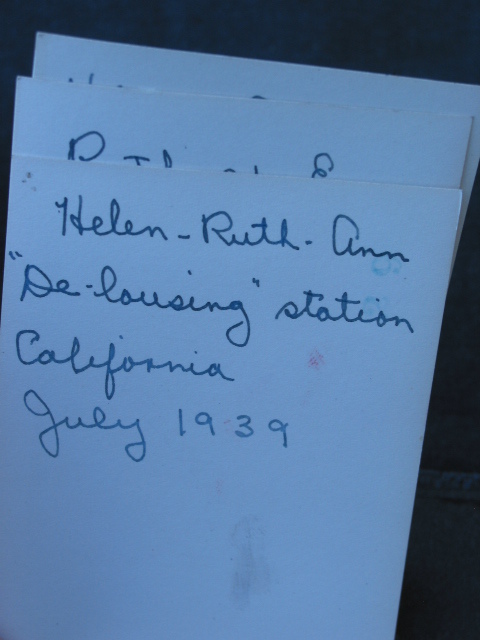 Helen-Ruth-Ann
"De-lousing" station
California
July 1939